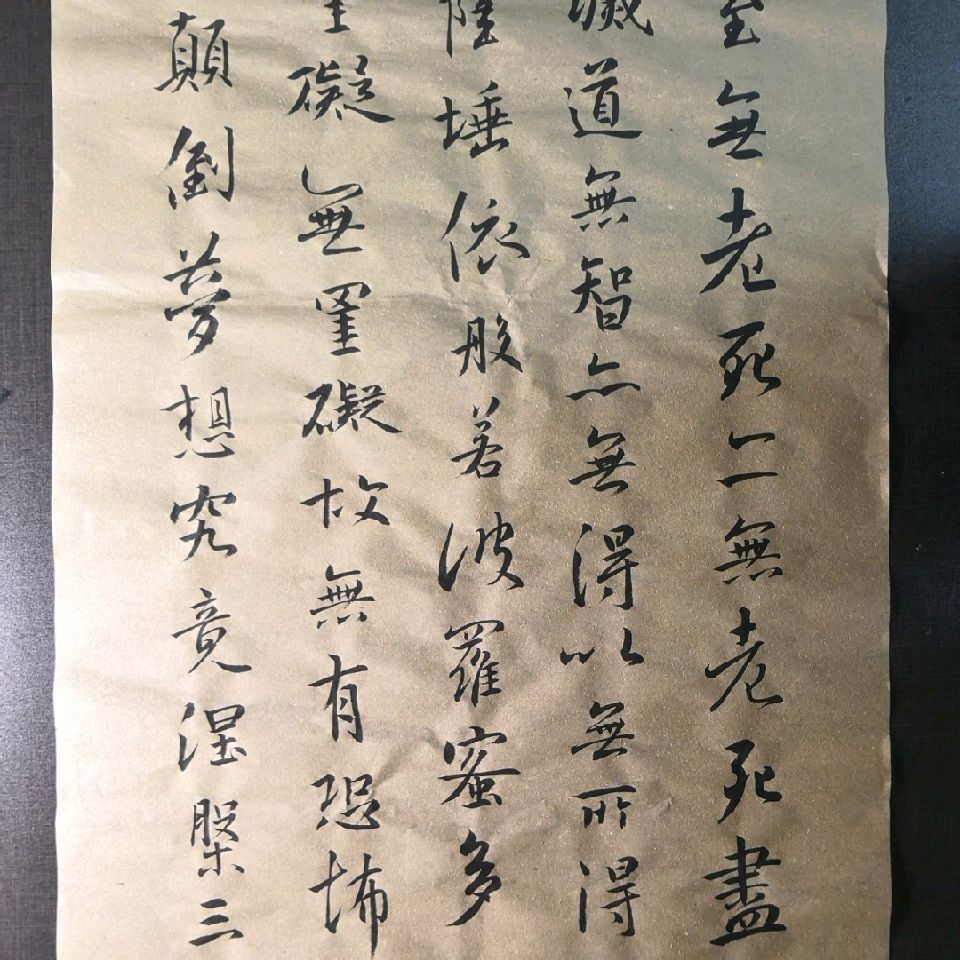 至無老死亡無老死盡
滅道無智亦無無得以無所得
陲埵依般若波羅蜜多
罣礙無罣礙故無有恐怖
顛倒夢想究竟涅槃三